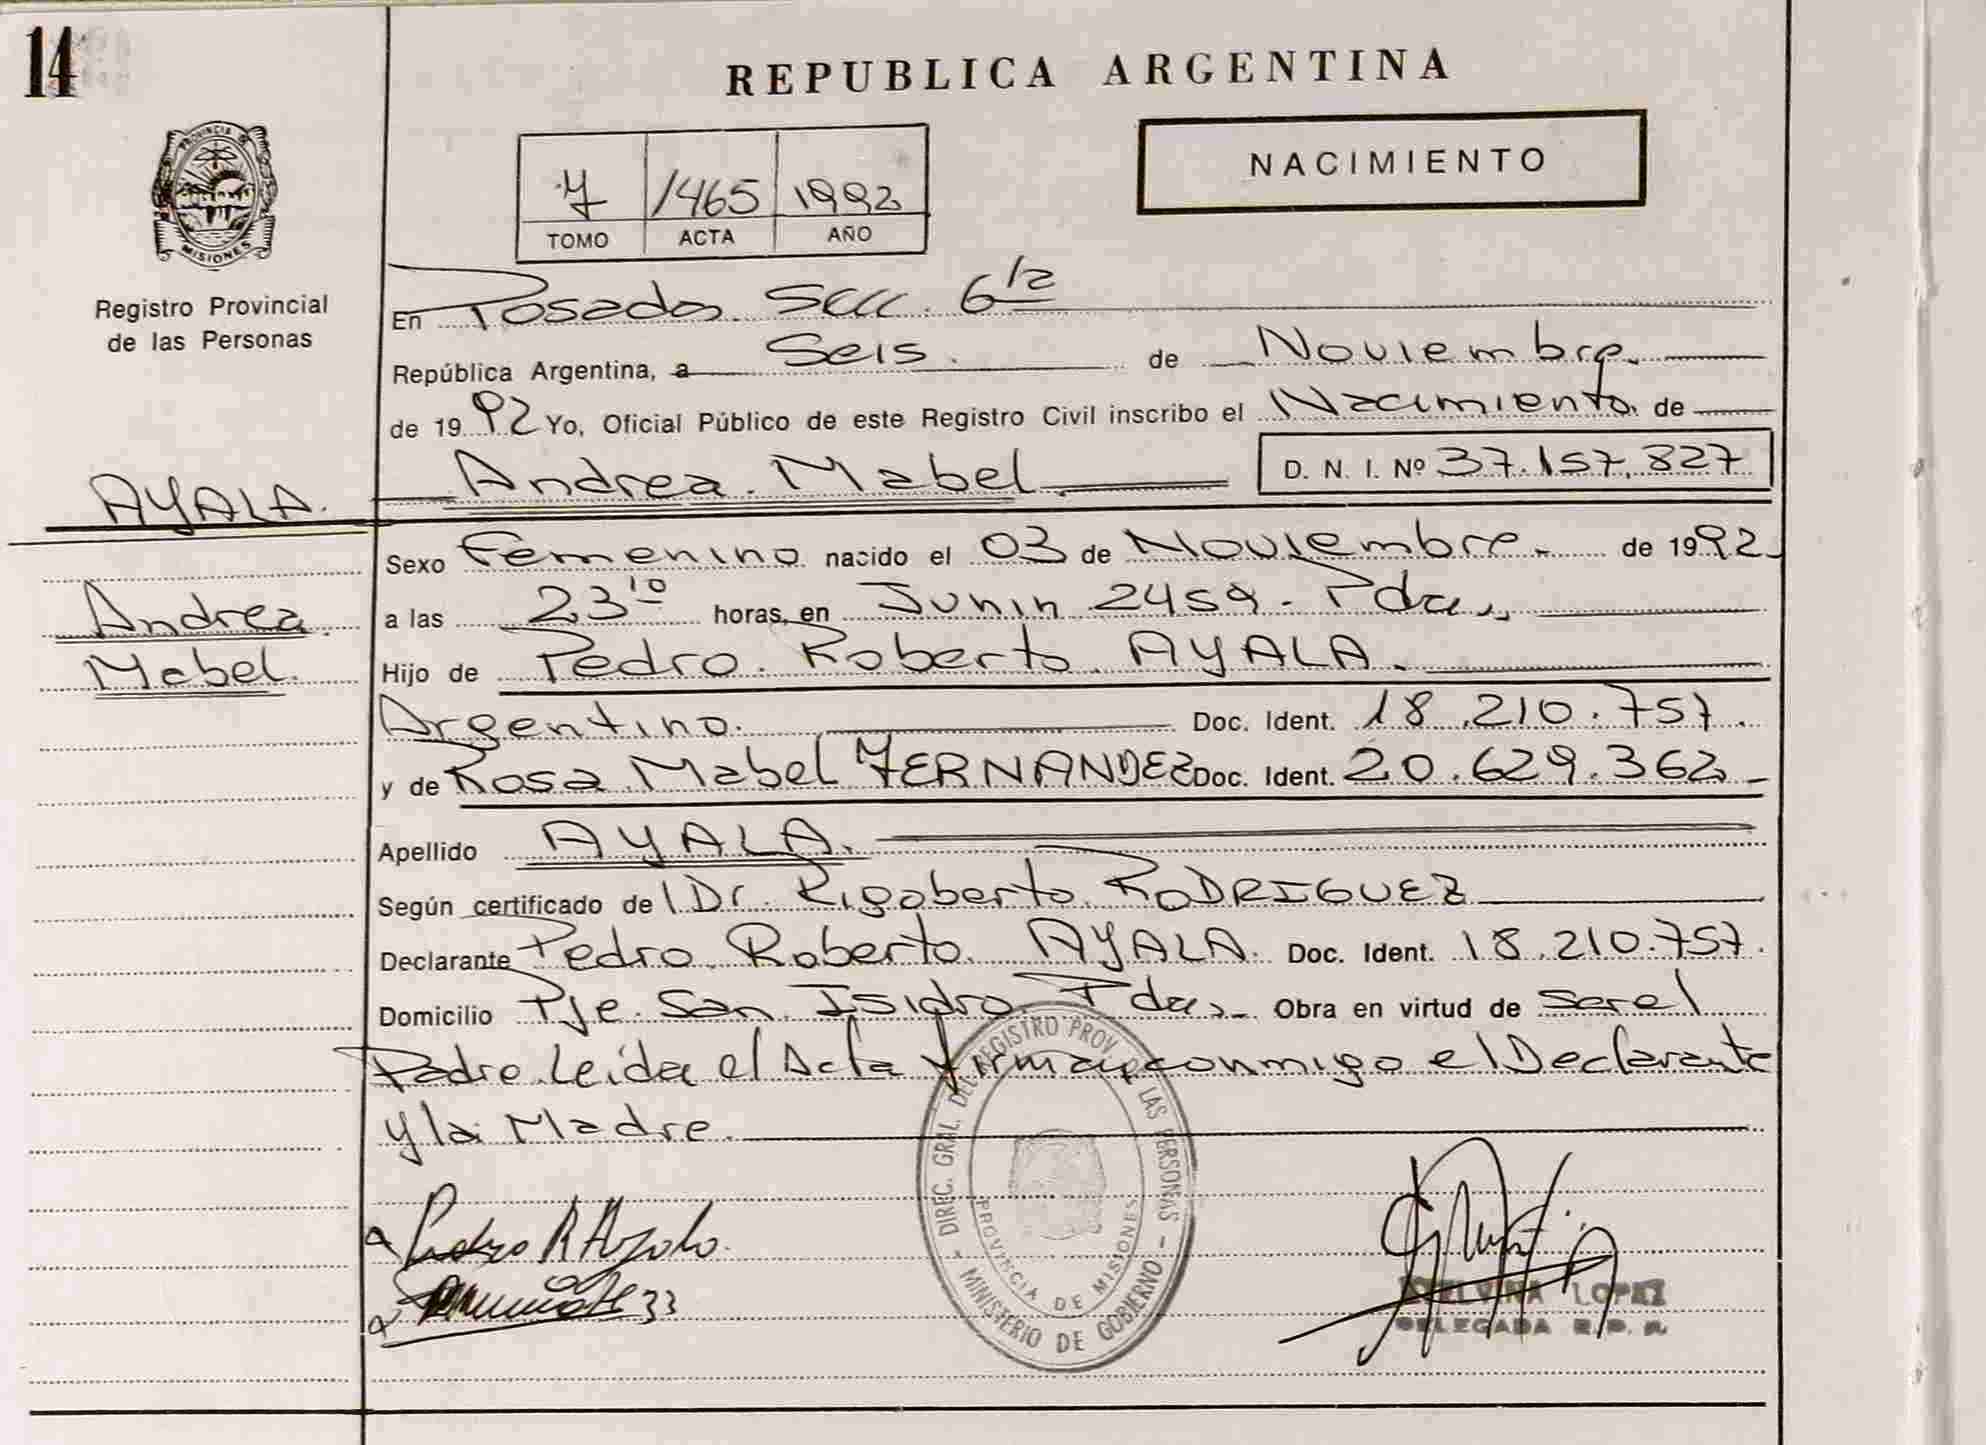 14
REPUBLICA ARGENTINA
PROVINCIA DE
MISIONES
Registro Provincial
de las Personas
7 1465 1992
TOMO ACTA AÑO
NACIMIENTO
En Posadas Secc. 6ta
República Argentina, a Seis. de Noviembre.
de 1992 Yo, Oficial Público de este Registro Civil inscribo el Nacimiento. de
Andrea Mabel. D. N. I. Nº 37.157.827
AYALA.
Andrea
Mabel.
Sexo Femenino nacido el 03 de Noviembre. de 1992
a las 23 10 horas, en Junin 2459 - Pdas,
Hijo de Pedro Roberto AYALA.
Argentino. Doc. Ident. 18.210.757.
y de Rosa Mabel FERNANDEZ Doc. Ident. 20.629.362
Apellido AYALA.
Según certificado del Dr. Rigoberto RODRIGUEZ
Declarante Pedro Roberto AYALA. Doc. Ident. 18.210.757.
Domicilio Pje. San Isidro Pdas, Obra en virtud de ser el
Padre. Leída el Acta firman conmigo el Declarante
y la Madre.
DIREC. GRAL. DEL REGISTRO PROV. DE LAS PERSONAS
PROVINCIA DE MISIONES
- MINISTERIO DE GOBIERNO -
Pedro R Ayala.
LOPEZ
DELEGADA R.P.P.